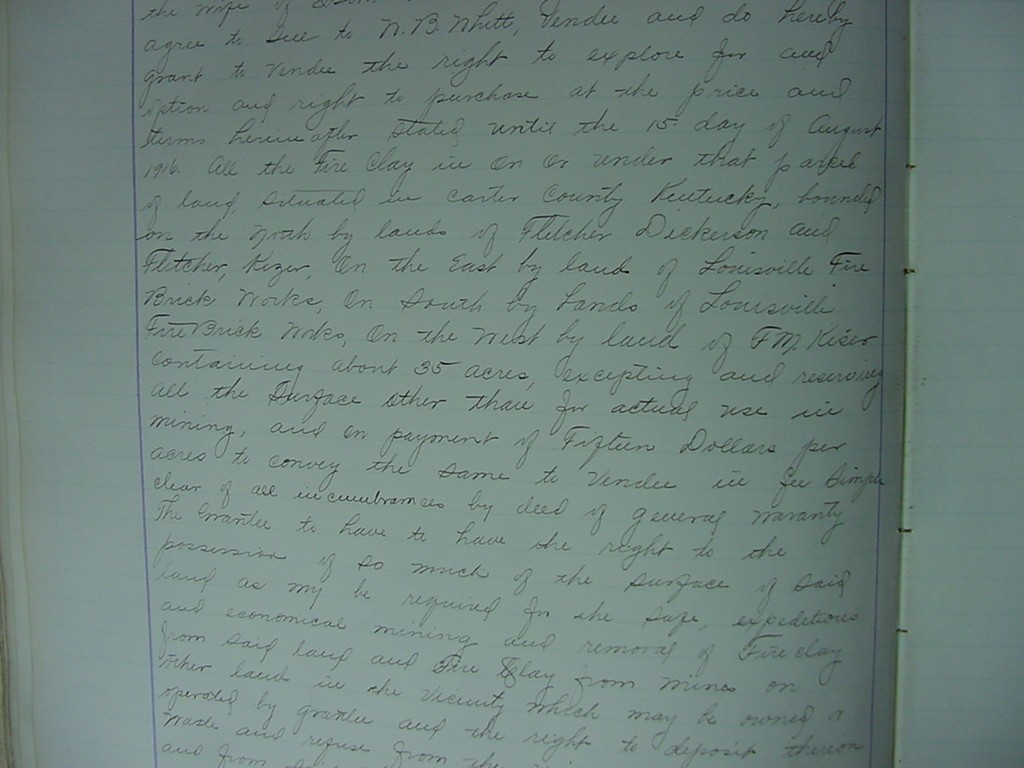 the wife of
agree to sell to N.B. Whitt, Vendee and do hereby
grant to Vendee the right to explore for and
option and right to purchase at the price and
terms hereinafter stated until the 15 day of August
1916. All the Fire Clay in on or under that parcel
of land situated in carter County Kentucky, bounded
on the North by lands of Fletcher Dickerson and
Fletcher, Kizer, On the East by land of Louisville Fire
Brick Works, On South by Lands of Louisville
Fire Brick Wrks, On the West by land of F.M. Kiser
containing about 35 acres, excepting and reserving
all the Surface other than for actual use in
mining, and on payment of Fifteen Dollars per
acres to convey the same to Vendee in fee Simple
clear of all incumbrances by deed of general waranty
The Grantee to have to have the right to the
possession of so much of the surface of said
land as my be required for the safe, expeditious
and economical mining and removal of Fire clay
from said land and Fire Clay from mines on
other land in the vicinity which may be owned or
operated by grantee and the right to deposit thereon
waste and refuse from the
and from